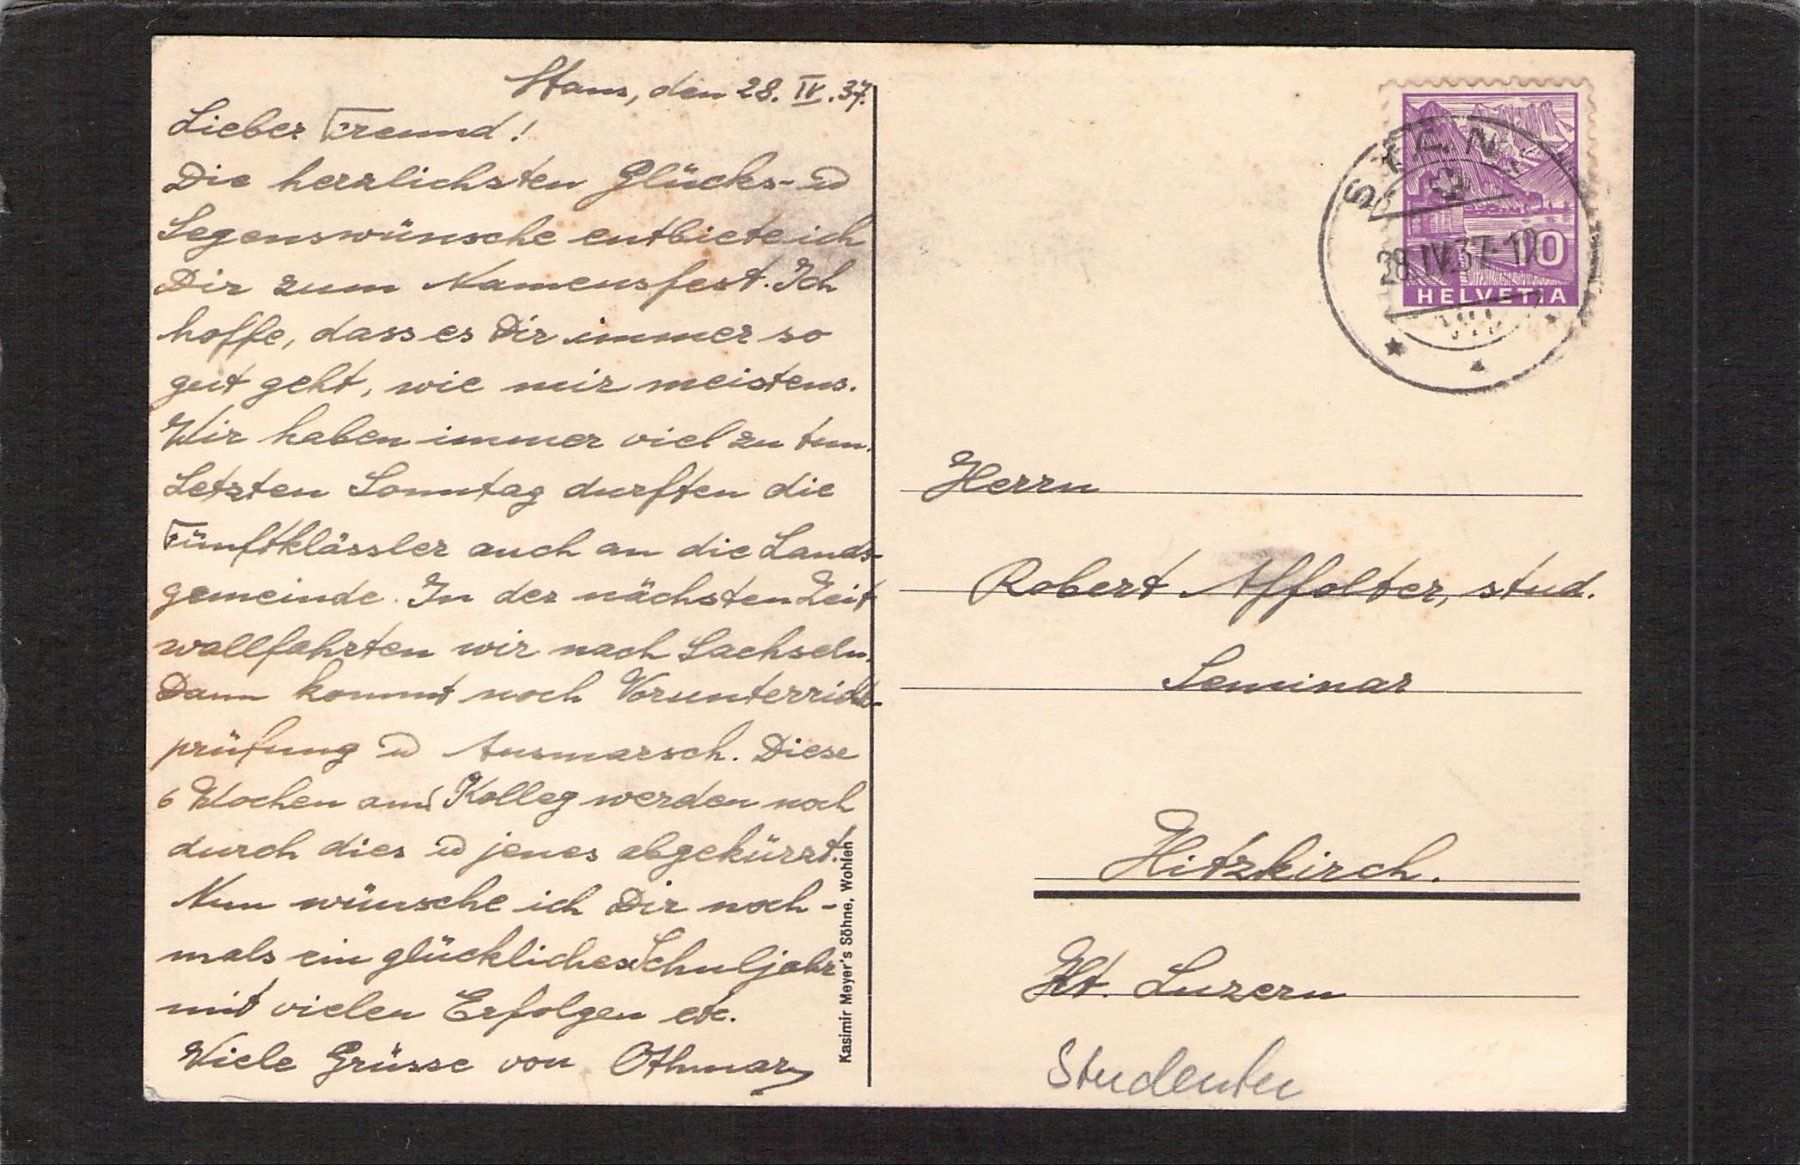 Stans, den 28. IV. 37.
Lieber Freund!
Die herrlichsten Glücks- u
Segenswünsche entbiete ich
Dir zum Namensfest. Ich
hoffe, dass es Dir immer so
gut geht, wie mir meistens.
Wir haben immer viel zu tun.
Letzten Sonntag durften die
Fünftklässler auch an die Lands-
gemeinde. In der nächsten Zeit
wallfahrten wir nach Sachseln.
Dann kommt noch Vorunterrichts-
prüfung u Ausmarsch. Diese
6 Wochen am Kolleg werden noch
durch dies u jenes abgekürzt.
Nun wünsche ich Dir noch-
mals ein glückliches Schuljahr
mit vielen Erfolgen etc.
Viele Grüsse von Othmar
Kasimir Meyer's Söhne, Wohlen
STANS
28.IV.37-12
10
HELVETIA
Herrn
Robert Affolter, stud.
Seminar
Hitzkirch.
Kt. Luzern
Studenten